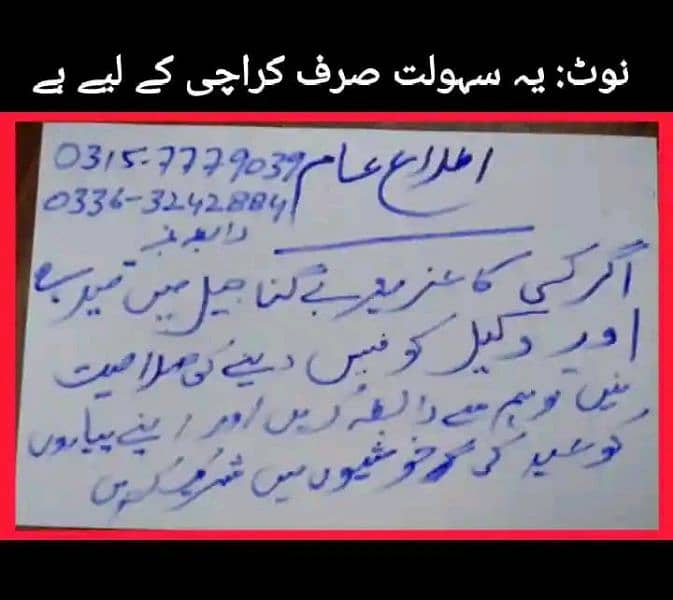 نوٹ: یہ سہولت صرف کراچی کے لیے ہے
اطلاع عام
0315-7779039
0336-3242884
رابطہ نمبر
اگر کسی کا عزیز بے گناہ جیل میں قید ہے
اور وکیل کو فیس دینے کی صلاحیت
نہیں تو ہم سے رابطہ کریں اور اپنے پیاروں
کو عید کی خوشیوں میں شریک کریں